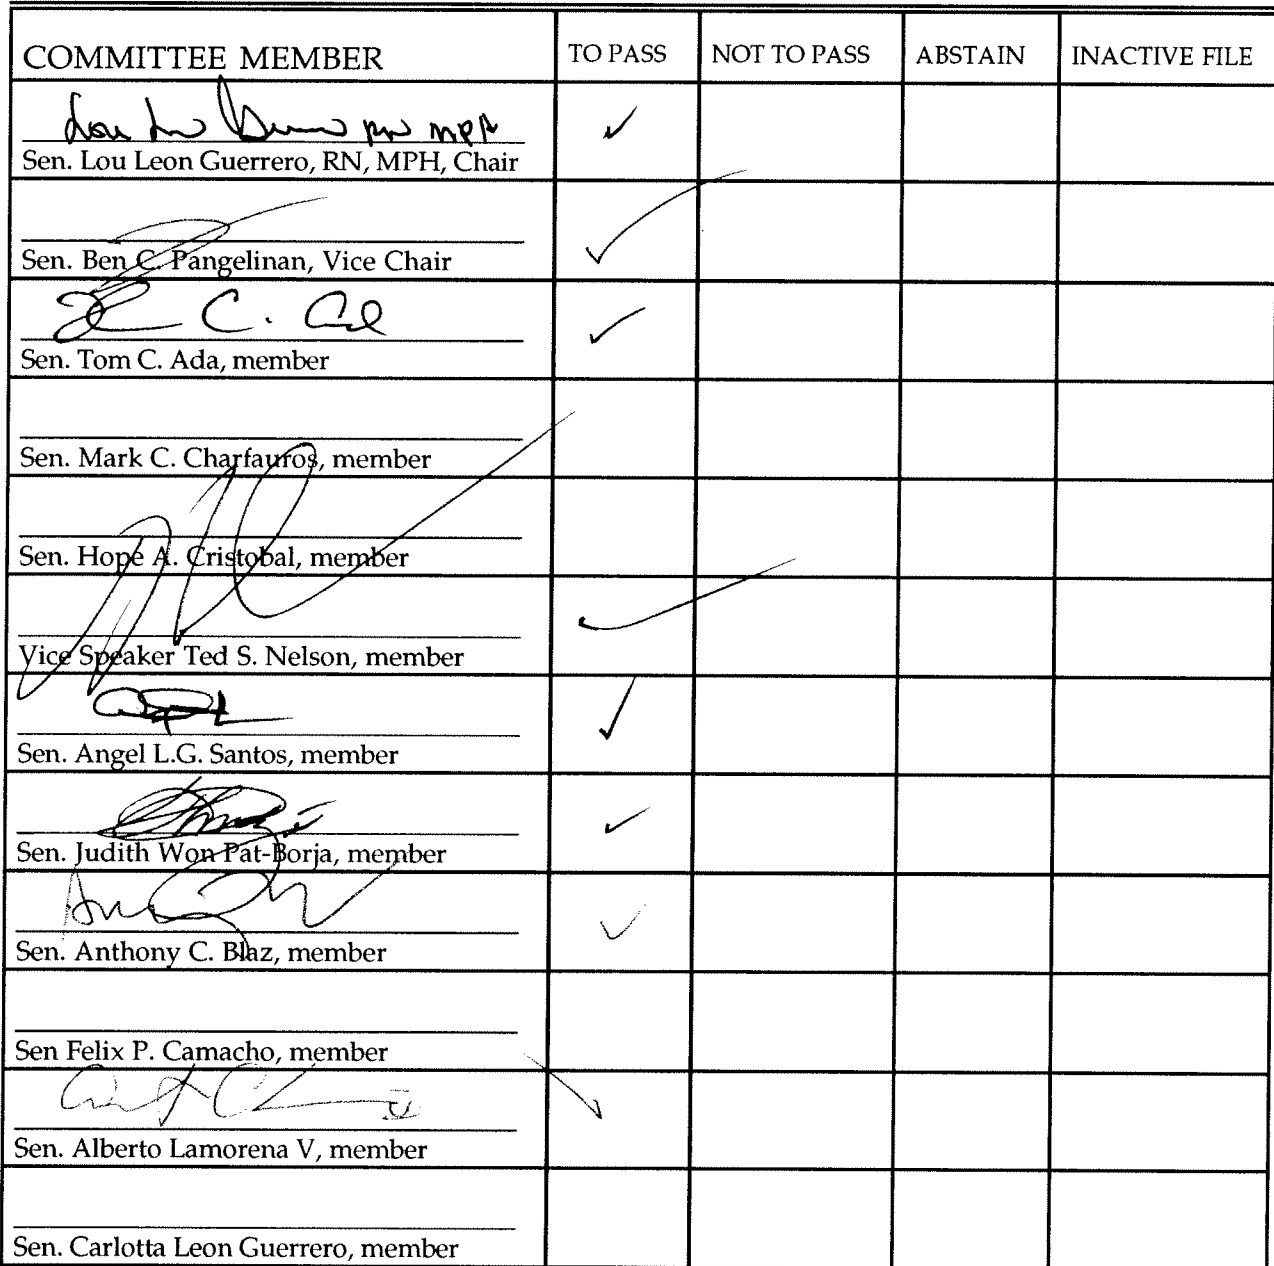 COMMITTEE MEMBER TO PASS NOT TO PASS ABSTAIN INACTIVE FILE
Lou Leon Guerrero RN MPH ✓
Sen. Lou Leon Guerrero, RN, MPH, Chair
✓
Sen. Ben C. Pangelinan, Vice Chair
C. Ada ✓
Sen. Tom C. Ada, member
Sen. Mark C. Charfauros, member
Sen. Hope A. Cristobal, member
✓
Vice Speaker Ted S. Nelson, member
✓
Sen. Angel L.G. Santos, member
✓
Sen. Judith Won Pat-Borja, member
✓
Sen. Anthony C. Blaz, member
Sen Felix P. Camacho, member
✓
Sen. Alberto Lamorena V, member
Sen. Carlotta Leon Guerrero, member